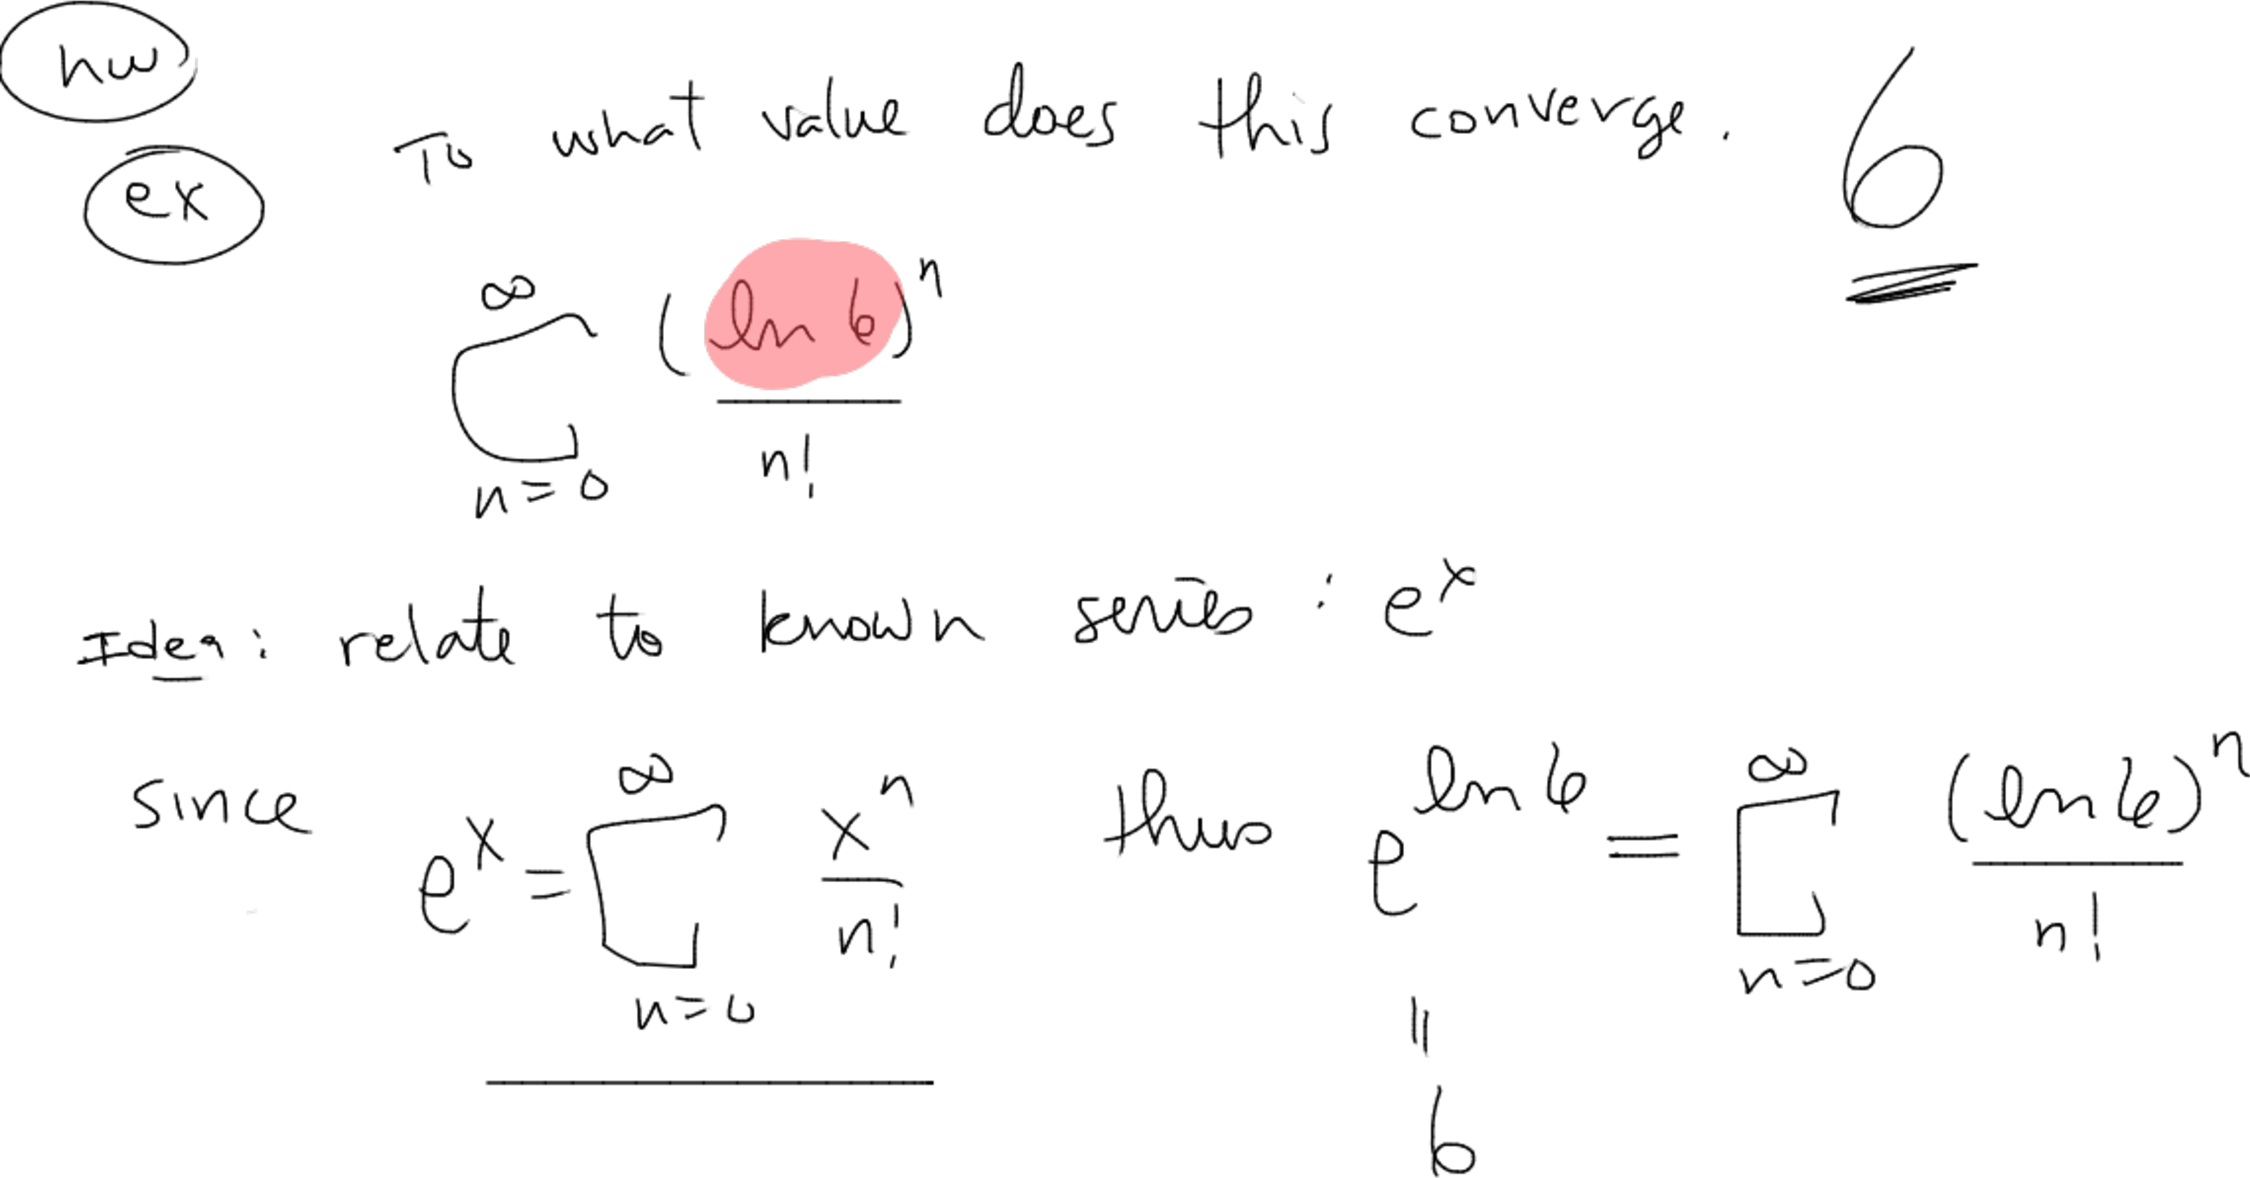 hw
ex To what value does this converge. 6
∞ Σ n=0 (ln 6)^n / n!
Idea: relate to known series: e^x
since e^x = ∞ Σ n=0 x^n / n! thus e^ln 6 = ∞ Σ n=0 (ln 6)^n / n!
||
6